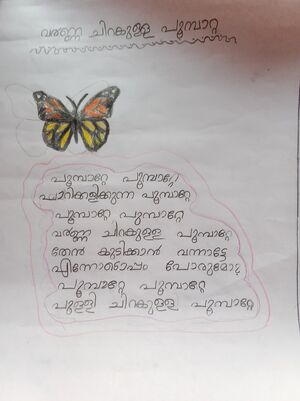 വര്‍ണ്ണ ചിറകുള്ള പൂമ്പാറ്റ
പൂമ്പാറ്റേ പൂമ്പാറ്റേ
പാറിക്കളിക്കുന്ന പൂമ്പാറ്റേ
പൂമ്പാറ്റേ പൂമ്പാറ്റേ
വര്‍ണ്ണ ചിറകുള്ള പൂമ്പാറ്റേ
തേൻ കുടിക്കാൻ വന്നാട്ടേ
എന്നോടൊപ്പം പോരുമോ?
പൂമ്പാറ്റേ പൂമ്പാറ്റേ
പുള്ളി ചിറകുള്ള പൂമ്പാറ്റേ